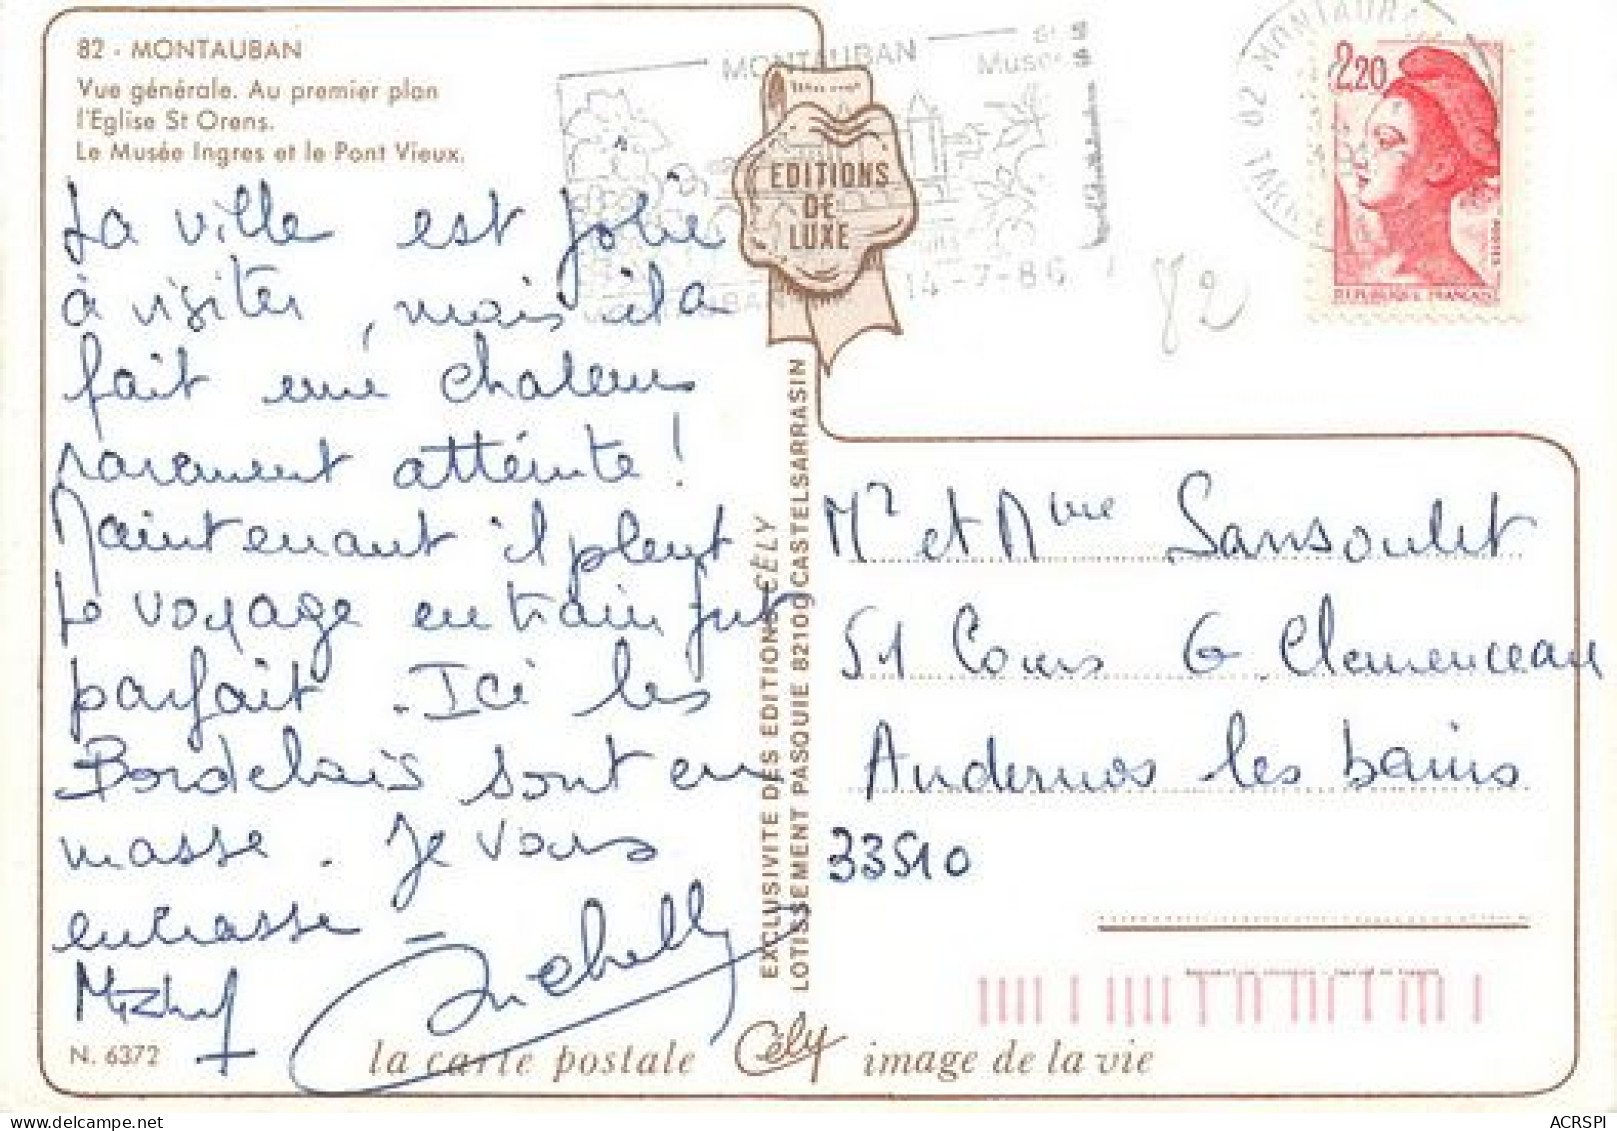 82 - MONTAUBAN
Vue générale. Au premier plan
l'Eglise St Orens.
Le Musée Ingres et le Pont Vieux.
La ville est jolie
à visiter, mais il a
fait une chaleur
rarement atteinte !
Maintenant il pleut
Le voyage en train fut
parfait. Ici les
Bordelais sont en
masse. Je vous
embrasse
Michelf
N. 6372
MONTAUBAN
14-7-86
EDITIONS
DE
LUXE
EXCLUSIVITE DES EDITIONS CÉLY
LOTISSEMENT PASQUIE 82100 CASTELSARRASIN
2,20
REPUBLIQUE FRANCAISE
82
Mr et Mme Sansoulet
51 Cours G. Clemenceau
Andernos les bains
33510
la carte postale Cély image de la vie
ACRSPI